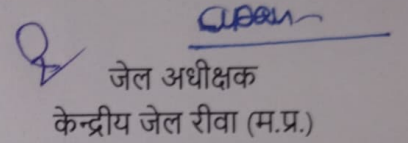 जेल अधीक्षक
केन्द्रीय जेल रीवा (म.प्र.)